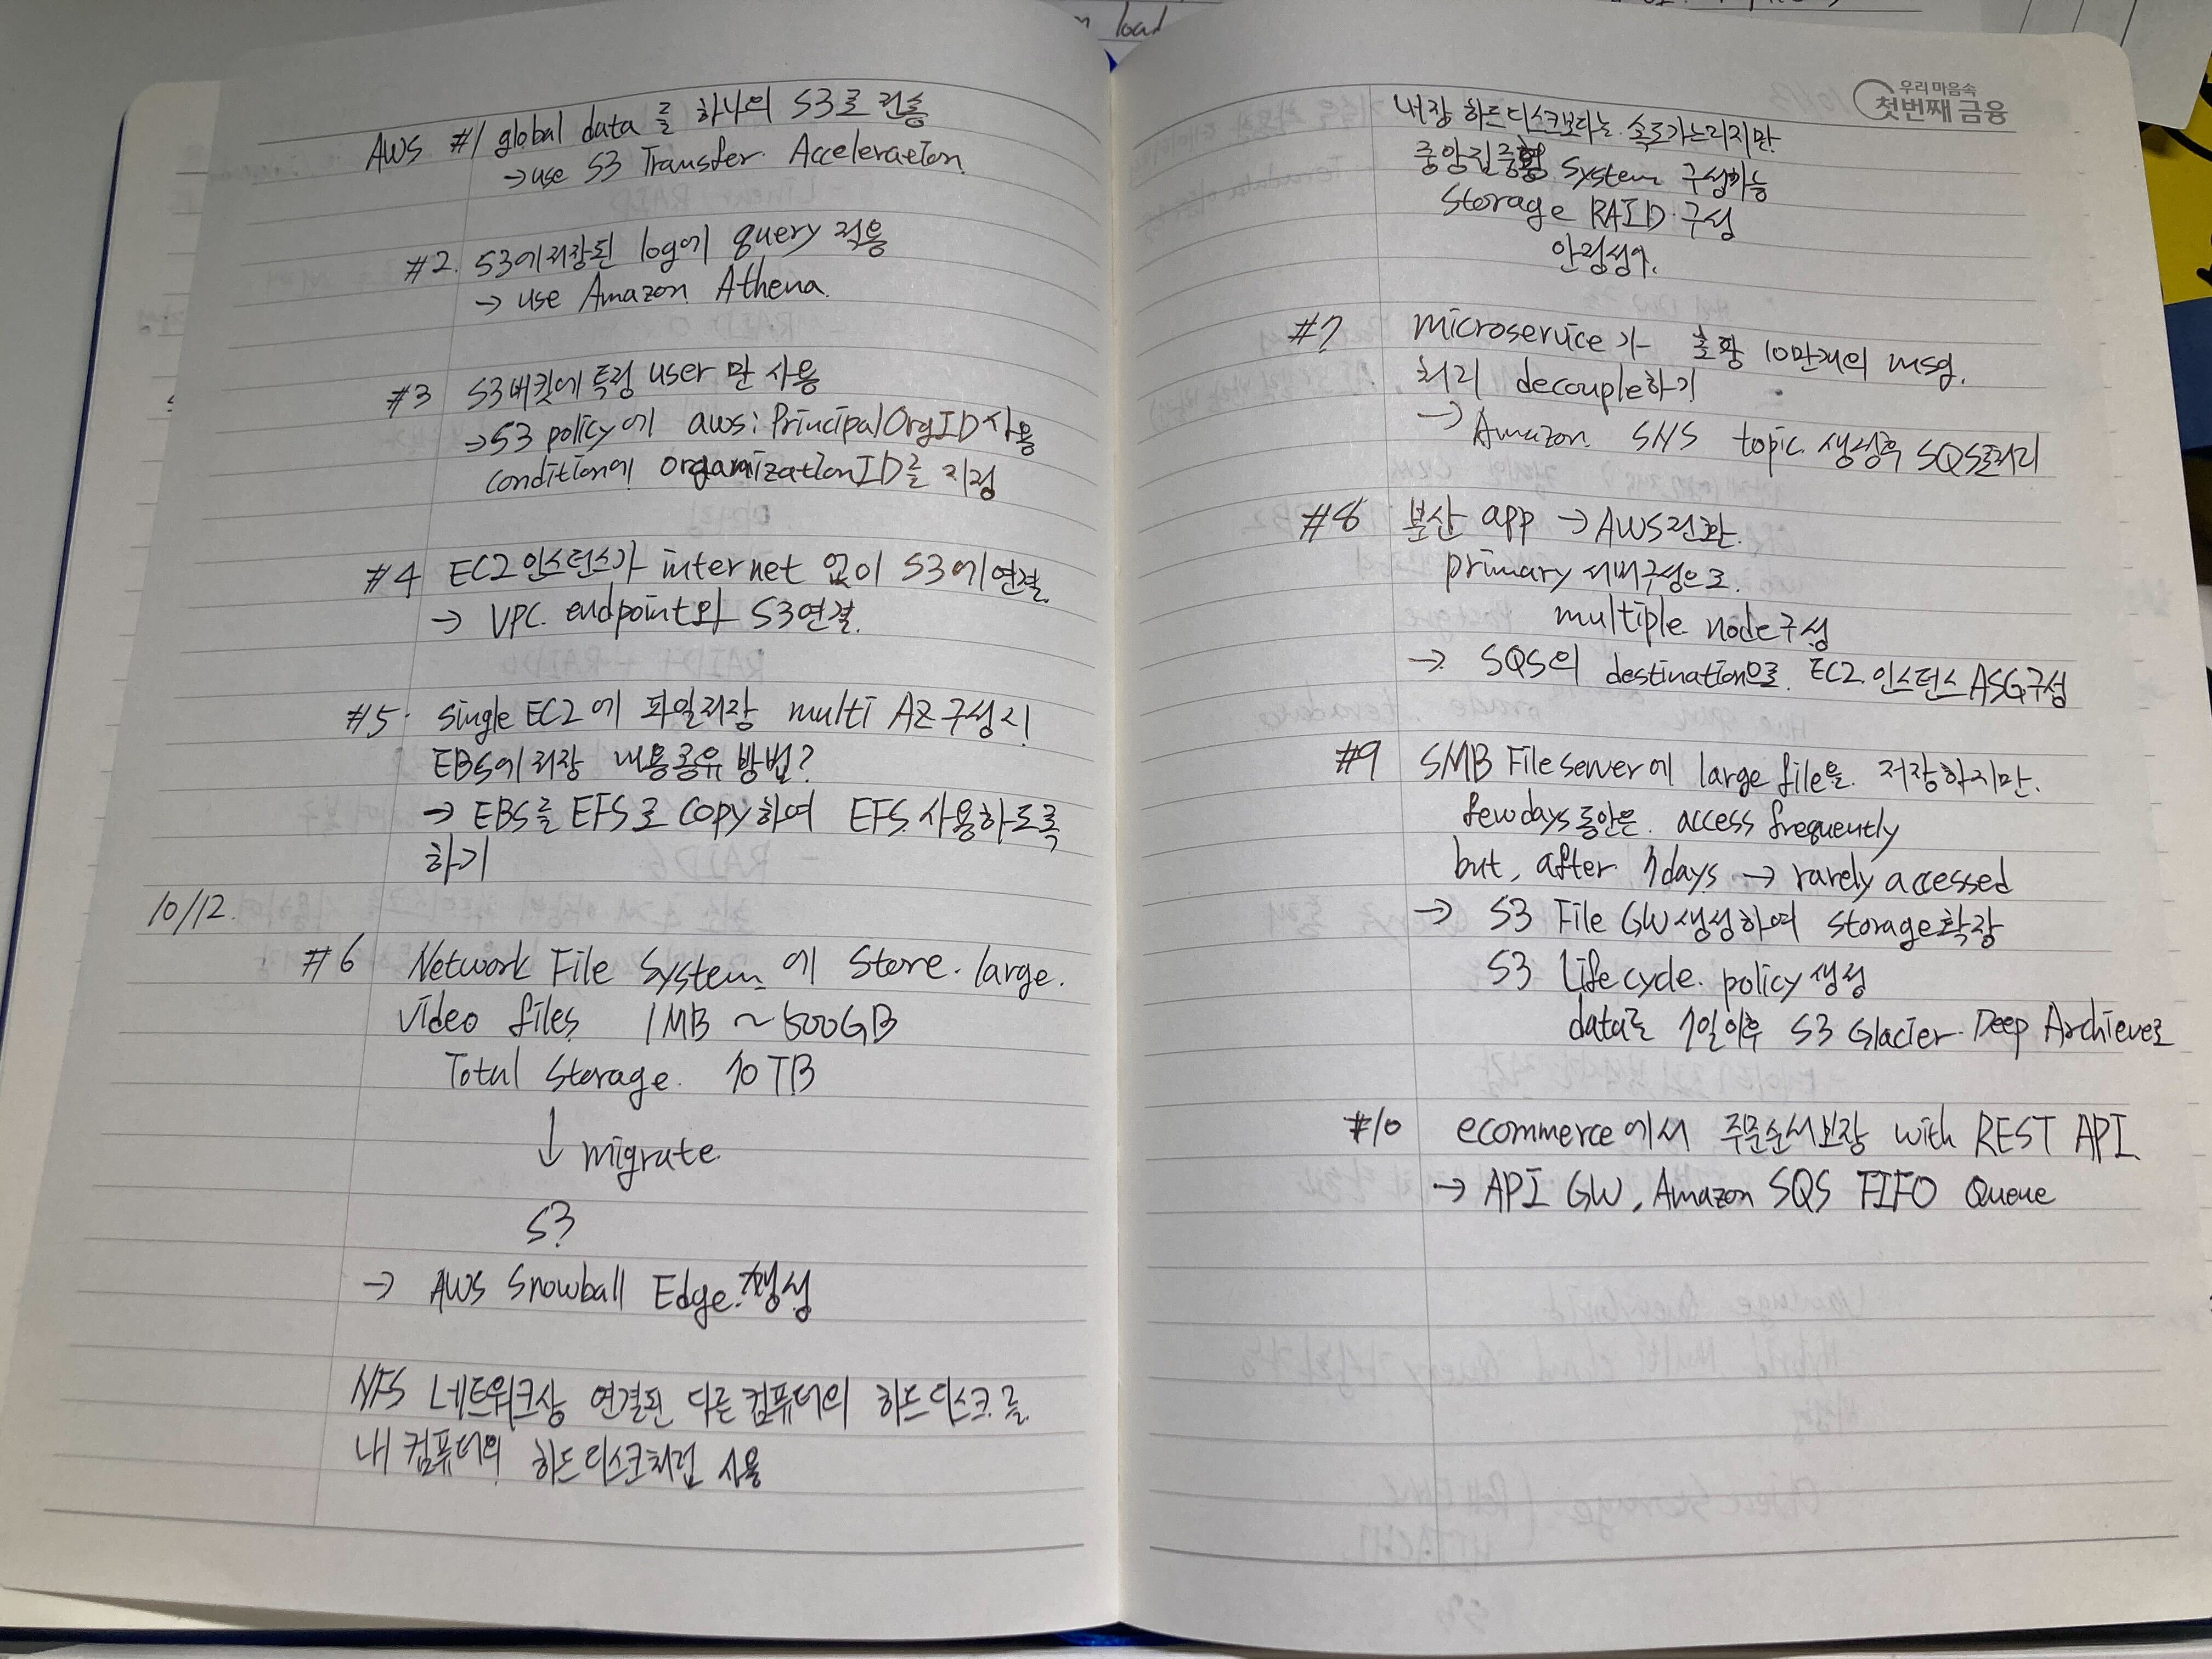 load
AWS #1 global data를 하나의 S3로 전송
→ use S3 Transfer Acceleration
#2. S3에 저장된 log에 query 적용
→ use Amazon Athena.
#3 S3버킷에 특정 user 만 사용
→ S3 policy에 aws:PrincipalOrgID 사용
condition에 organizationID를 지정
#4 EC2인스턴스가 internet 없이 S3에 연결.
→ VPC endpoint와 S3연결.
#5. Single EC2에 파일저장 multi AZ 구성시
EBS에 저장 내용공유 방법?
→ EBS를 EFS로 Copy하여 EFS 사용하도록
하기
10/12.
#6 Network File System에 Store large.
video files 1MB ~ 500GB
Total Storage. 70TB
↓ migrate
S3
→ AWS Snowball Edge. 생성
NFS 네트워크상 연결된 다른 컴퓨터의 하드디스크를
내 컴퓨터의 하드디스크처럼 사용
우리 마음속
첫번째 금융
내장 하드디스크보다는 속도가느리지만
중앙집중형 System 구성가능
Storage RAID 구성
안정성↑.
#7 microservice가 초당 10만개의 msg.
처리 decouple하기
→ Amazon SNS topic 생성후 SQS로처리
#8 분산 app → AWS전환.
primary 서버구성으로
multiple node구성
→ SQS의 destination으로 EC2 인스턴스 ASG구성
#9 SMB File server에 large file을 저장하지만.
few days 동안은 access frequently
but, after 7days → rarely accessed
→ S3 File GW생성하여 storage확장
S3 Lifecycle policy 생성
data는 7일이후 S3 Glacier Deep Archieve로
#10 ecommerce에서 주문순서보장 with REST API
→ API GW, Amazon SQS FIFO Queue